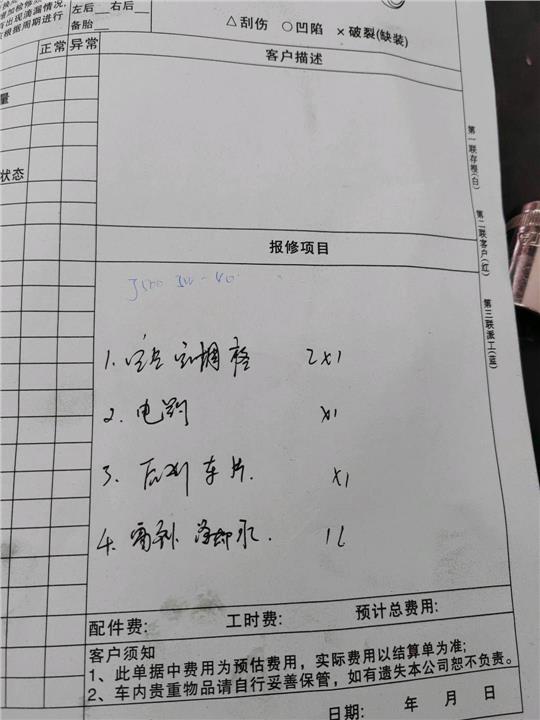 增加检修
有出现流漏情况,
左后 右后
根据周期进行
备胎
△刮伤 ○凹陷 ×破裂(缺装)
正常 异常
客户描述
量
状态
第一联存根(白)
第二联客户(红)
第三联派工(蓝)
报修项目
1. 空调格 2×1
2. 电 ×1
3. 后刹车片. ×1
4. 冷却水. 1L
配件费: 工时费: 预计总费用:
客户须知
1、此单据中费用为预估费用，实际费用以结算单为准;
2、车内贵重物品请自行妥善保管，如有遗失本公司恕不负责。
日期: 年 月 日